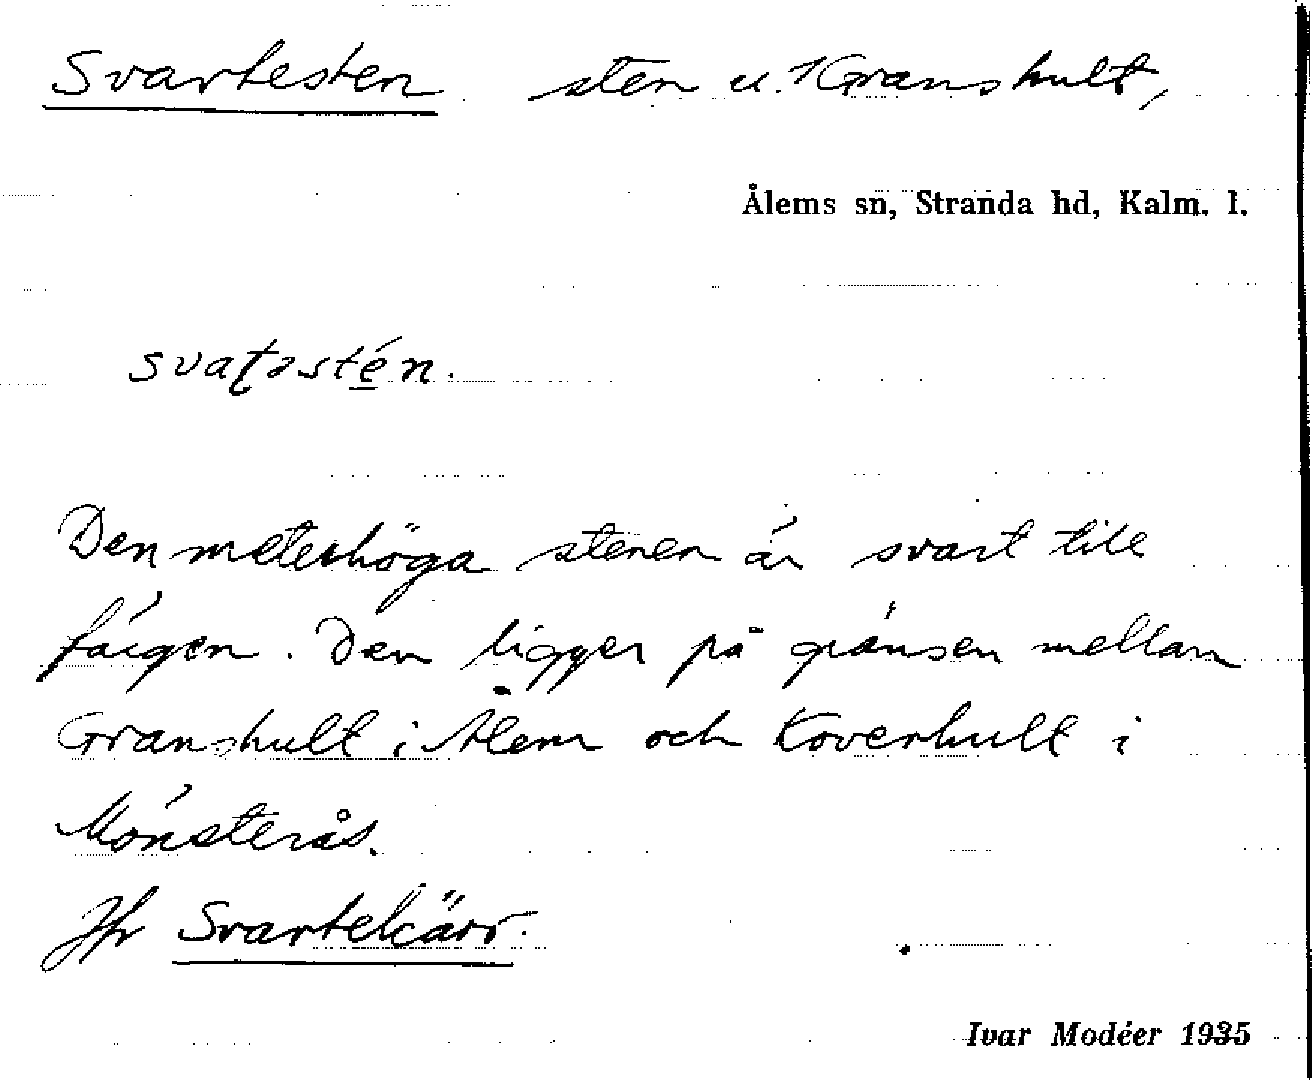 Svartesten sten u. Granshult,
Ålems sn, Stranda hd, Kalm. l.
svaʈəstén.
Den meterhöga stenen är svart till
färgen. Den ligger på gränsen mellan
Granshult i Ålem och Koverhult i
Mönsterås.
Jfr Svartekärr.
Ivar Modéer 1935